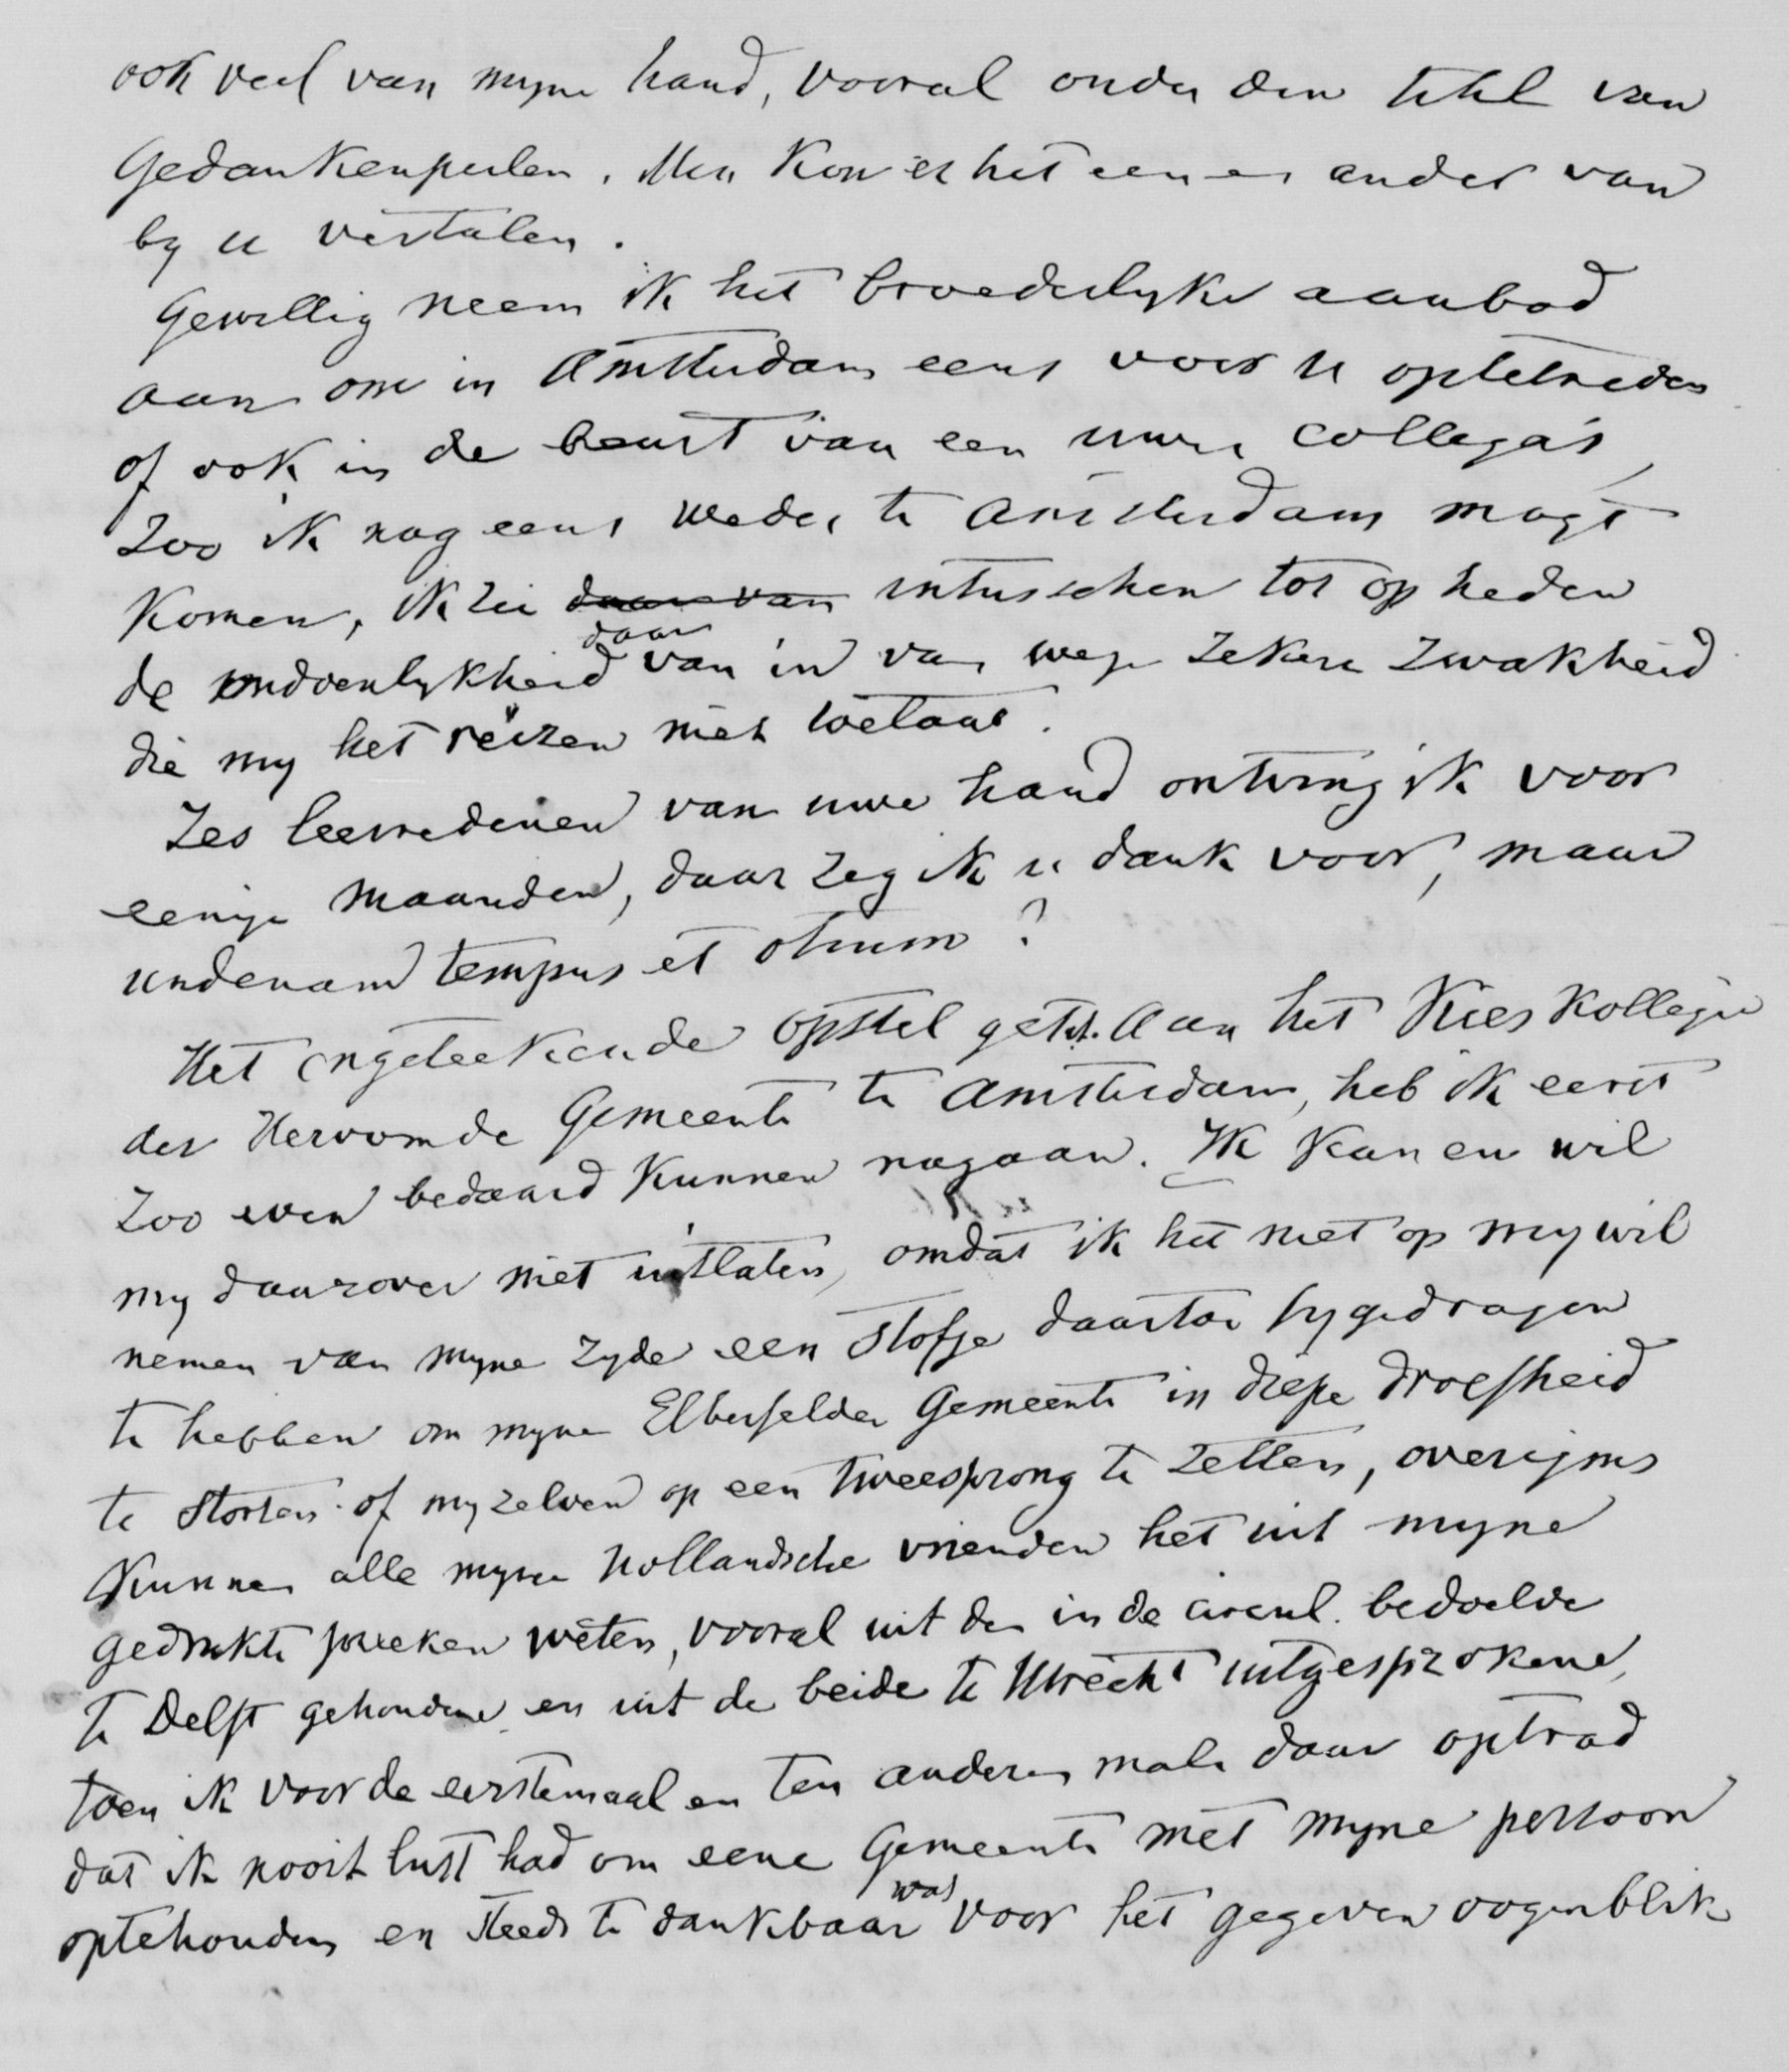 ook veel van myne hand, vooral onder den titel van
Gedankenperlen. Men kon er het een en ander van
by u vertalen.
Gewillig neem ik het broederlyke aanbod
aan om in Amsterdam eens voor u optetreden
of ook in de beurt van een uwer collega's,
zoo ik nog eens weder te Amsterdam mogt
komen, ik zie daar van intusschen tot op heden
de ondoenlykheid daar van in van wege zekere zwakheid
die my het reizen niet toelaat.
Zes leerredenen van uwe hand ontving ik voor
eenige maanden, daar zeg ik u dank voor, maar
undenam tempus et otium?
Het ongeteekende opstel getit. Aan het Kieskollegie
der Hervormde Gemeente te Amsterdam, heb ik eerst
zoo even bedaard kunnen nagaan. Ik kan en wil
my daarover niet uitlaten, omdat ik het niet op my wil
nemen van myne zyde een stofje daartoe bygedragen
te hebben om myne Elberfelder Gemeente in diepe droefheid
te storten of my zelven op een tweesprong te zetten, overigens
kunnen alle myne Hollandsche vrienden het uit myne
gedrukte preeken weten, vooral uit de in de circul. bedoelde
te Delft gehoudene en uit de beide te Utrecht uitgesprokene,
toen ik voor de eerstemaal en ten anderen male daar optrad
dat ik nooit lust had om eene Gemeente met myne persoon
optehouden en steeds te dankbaar was voor het gegeven oogenblik